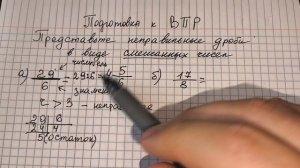 Подготовка к ВПР
Представьте неправильные дроби
в виде смешанных чисел
числитель
а) 29/6 = 29:6 = 4 5 б) 17/3 =
знамен
> 3 - неправ
29 6
24 4
5 (остаток)